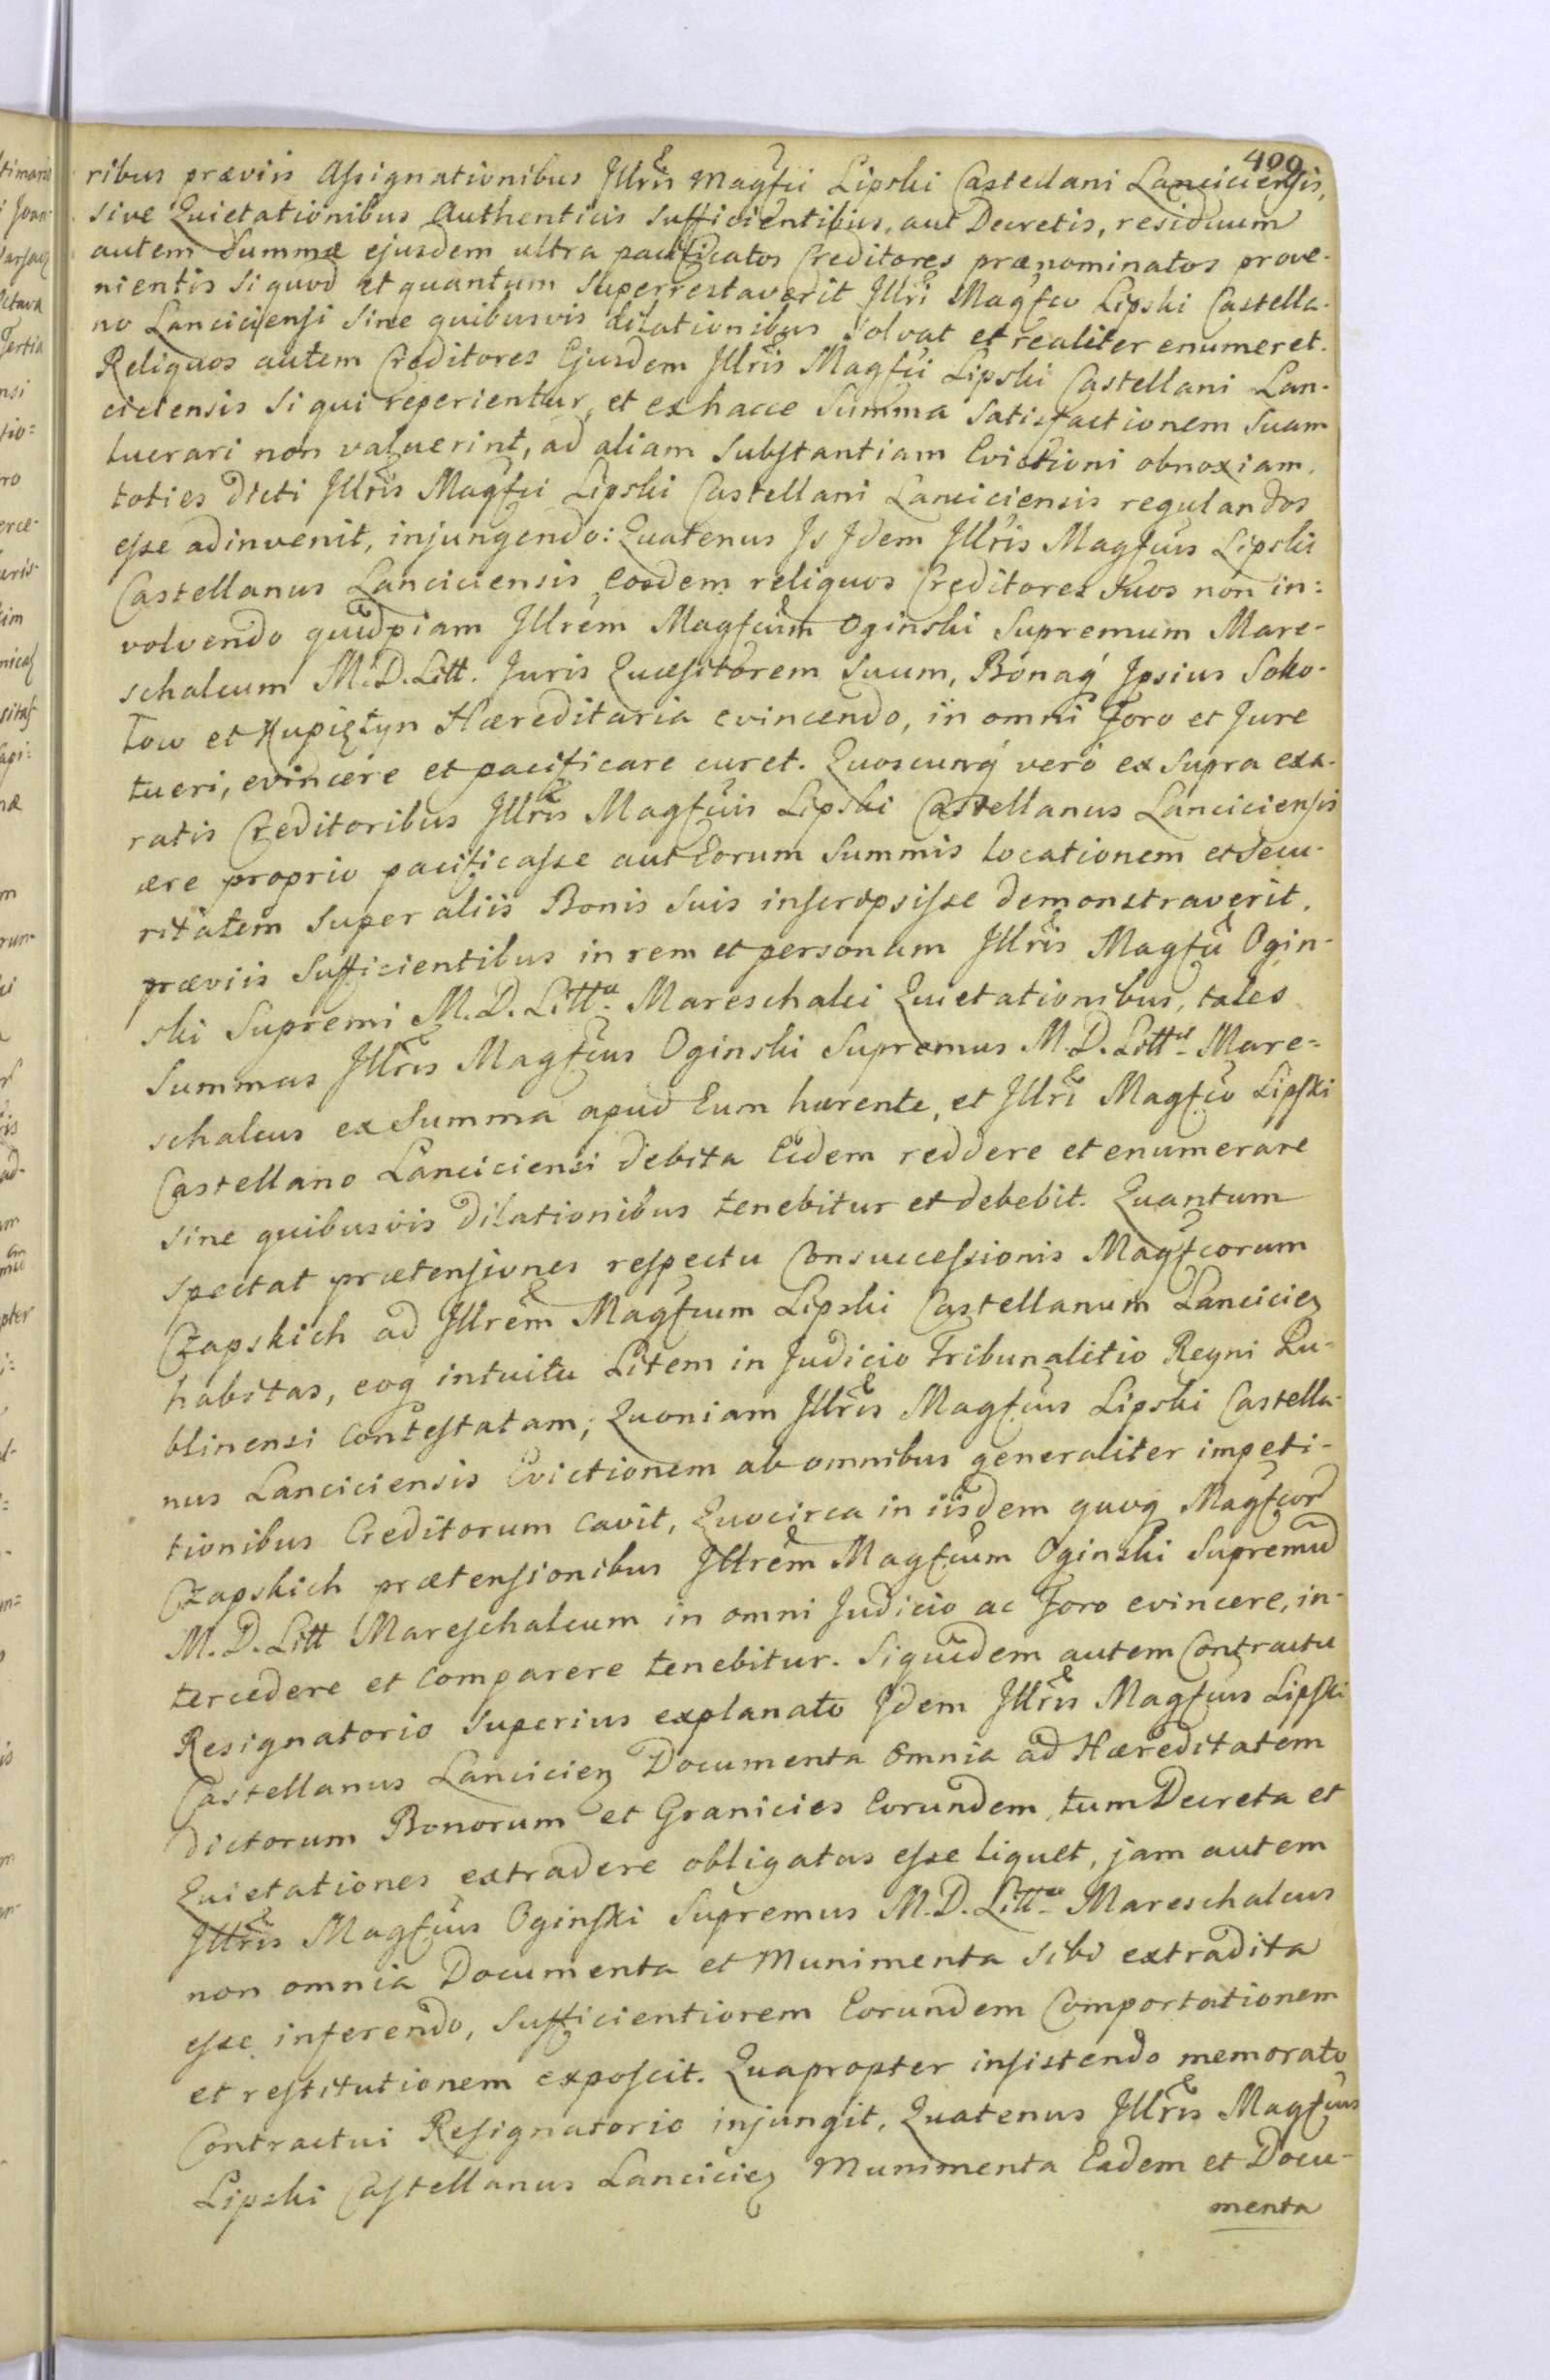 409
ribus præviis Assignationibus Jllris Magfci Lipski Castellani Lanciciensis,
sive Quietationibus Authenticis sufficientibus, aut Decretis, residuum
autem Summæ ejusdem ultra pacificatos Creditores prænominatos prove-
nientis si quod et quantum superrestaverit Jllri Magfco Lipski Castella-
no Lanciciensi sine quibusvis dilationibus solvat et realiter enumeret.
Reliquos autem Creditores Ejusdem Jllris Magfci Lipski Castellani Lan-
ciciensis si qui reperientur, et ex hacce Summa satisfactionem suam
lucrari non valuerint, ad aliam Substantiam Evictioni obnoxiam,
toties dicti Jllris Magfci Lipski Castellani Lanciciensis regulandos
esse adinvenit, injungendo: Quatenus Js Jdem Jllris Magfcus Lipski
Castellanus Lanciciensis, eosdem reliquos Creditores suos non in:
volvendo quidpiam Jllrem Magfcum Oginski Supremum Mare-
schalcum M.D.Litt. Juris Quæsitorem suum, Bonaq Jpsius Soko-
łow et Kupiętyn Hæreditaria evincendo, in omni Foro et Jure
tueri, evincere et pacificare curet. Quoscunq vero ex supra exa-
ratis Creditoribus Jllris Magfcus Lipski Castellanus Lanciciensis
ære proprio pacificasse aut Eorum Summis locationem et secu-
ritatem super aliis Bonis suis inscripsisse demonstraverit,
præviis sufficientibus in rem et personam Jllris Magfci Ogin-
ski Supremi M.D.Litt. Mareschalci Quietationibus, tales
Summas Jllris Magfcus Oginski Supremus M.D.Litt. Mare=
schalcus ex Summa apud Eum hærente, et Jllri Magfco Lipski
Castellano Lanciciensi debita Eidem reddere et enumerare
sine quibusvis dilationibus tenebitur et debebit. Quantum
spectat prætensiones respectu Consuccessionis Magfcorum
Czapskich ad Jllrem Magfcum Lipski Castellanum Lancicien
habitas, eoq intuitu Litem in Judicio Tribunalitio Regni Lu-
blinensi Contestatam; Quoniam Jllris Magfcus Lipski Castella-
nus Lanciciensis Evictionem ab omnibus generaliter impeti-
tionibus Creditorum cavit, Quocirca in iisdem quoq Magfcor
Czapskich prætensionibus Jllrem Magfcum Oginski Supremu
M.D.Litt Mareschalcum in omni Judicio ac Foro evincere, in-
tercedere et comparere tenebitur. Siquidem autem Contractu
Resignatorio superius explanato Jdem Jllris Magfcus Lipski
Castellanus Lancicien Documenta omnia ad Hæreditatem
dictorum Bonorum et Granicies Eorundem, tum Decreta et
Quietationes extradere obligatus esse liquet, jam autem
Jllris Magfcus Oginski Supremus M.D.Litt. Mareschalcus
non omnia Documenta et Munimenta sibi extradita
esse inferendo, sufficientiorem Eorundem Comportationem
et restitutionem exposcit. Quapropter insistendo memorato
Contractui Resignatorio injungit, Quatenus Jllris Magfcus
Lipski Castellanus Lancicien Munimenta Eadem et Docu-
menta